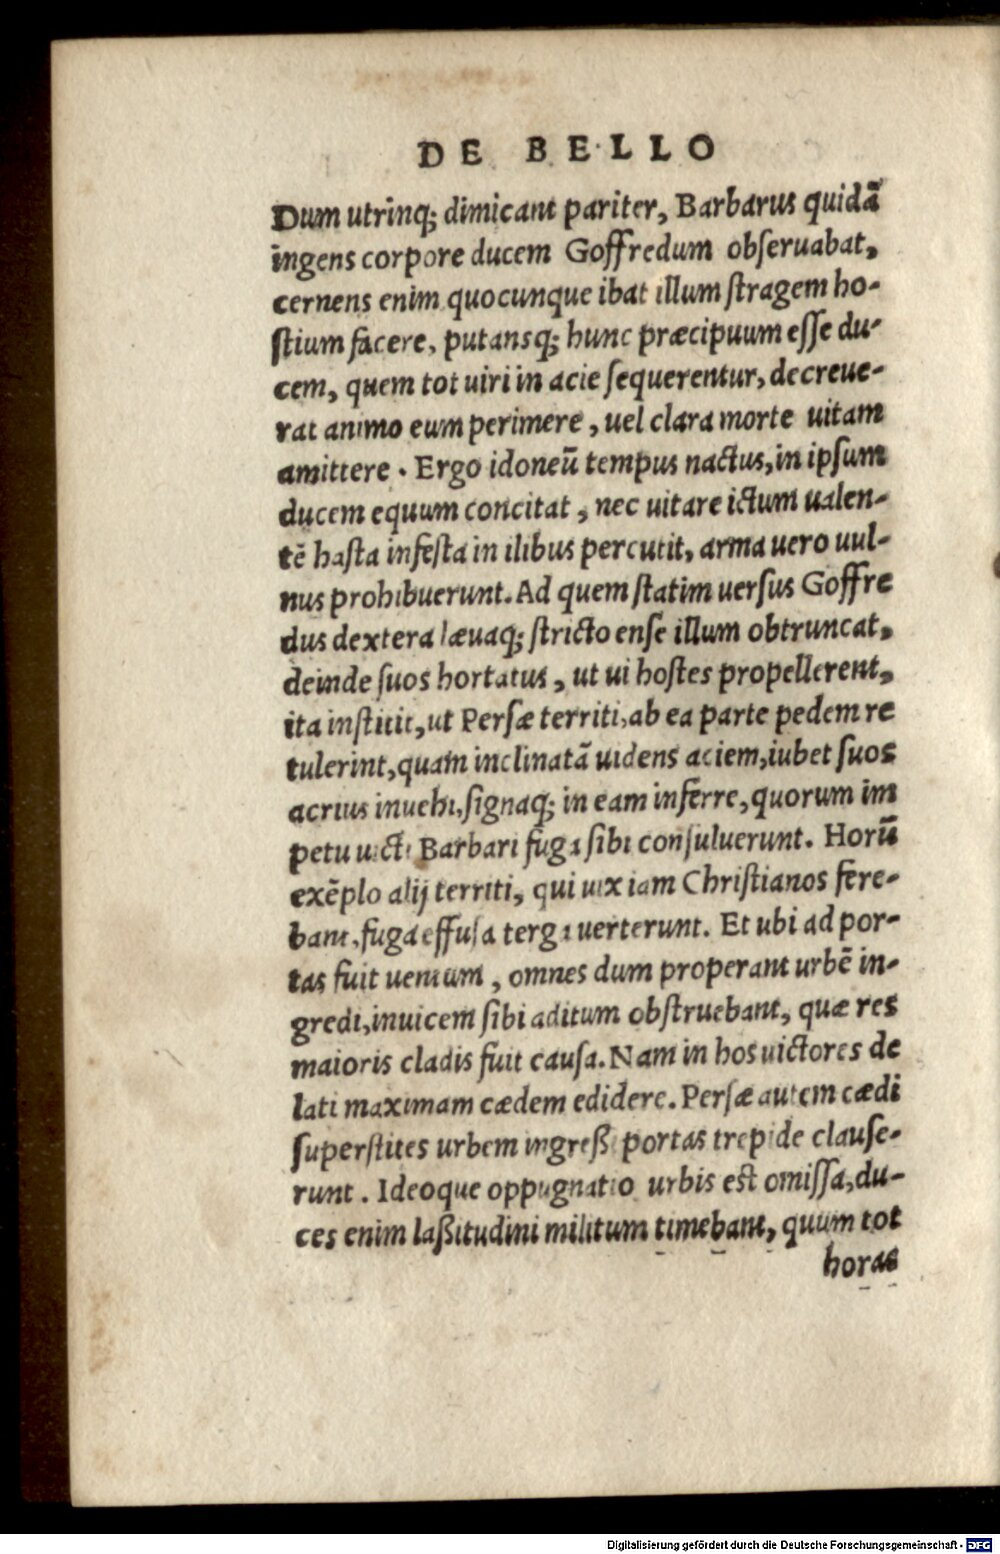 DE BELLO
Dum utrinq; dimicant pariter, Barbarus quidã
ingens corpore ducem Goffredum obſeruabat,
cernens enim quocunque ibat illum ſtragem ho-
ſtium facere, putansq; hunc præcipuum eſſe du-
cem, quem tot uiri in acie ſequerentur, decreue-
rat animo eum perimere, uel clara morte uitam
amittere. Ergo idoneũ tempus nactus, in ipſum
ducem equum concitat, nec uitare ictum ualen-
tẽ haſta infeſta in ilibus percutit, arma uero uul-
nus prohibuerunt. Ad quem ſtatim uerſus Goffre
dus dextera læuaq; ſtricto enſe illum obtruncat,
deinde ſuos hortatus, ut ui hoſtes propellerent,
ita inſtitit, ut Perſæ territi, ab ea parte pedem re
tulerint, quam inclinatã uidens aciem, iubet ſuos
acrius inuehi, ſignaq; in eam inferre, quorum im
petu uicti Barbari fuga ſibi conſuluerunt. Horũ
exẽplo alij territi, qui uix iam Chriſtianos fere-
bant, fuga effuſa terga uerterunt. Et ubi ad por-
tas fuit uentum, omnes dum properant urbẽ in-
gredi, inuicem ſibi aditum obſtruebant, quæ res
maioris cladis fuit cauſa. Nam in hos uictores de
lati maximam cædem edidere. Perſæ autem cædi
ſuperſtites urbem ingreßi portas trepide clauſe-
runt. Ideoque oppugnatio urbis eſt omiſſa, du-
ces enim laßitudini militum timebant, quum tot
horas
Digitalisierung gefördert durch die Deutsche Forschungsgemeinschaft - DFG